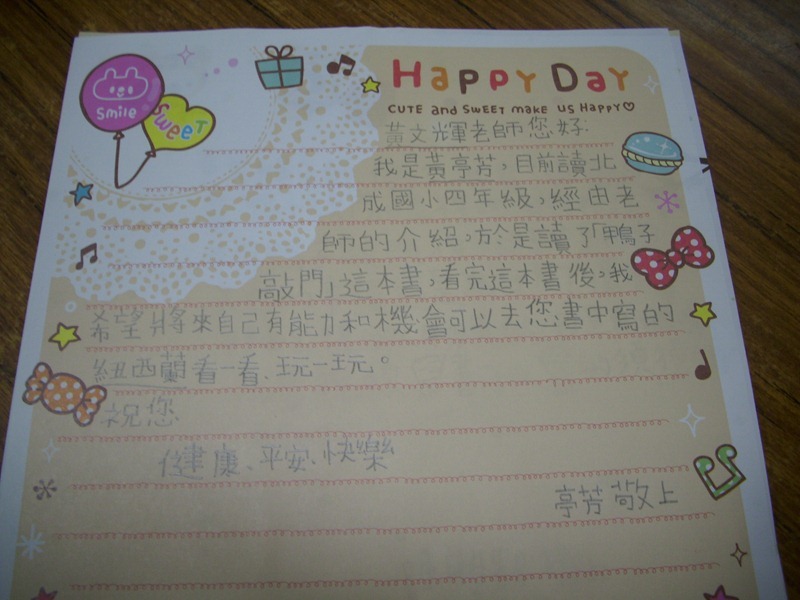 Smile
Sweet
Happy Day
Cute and Sweet make us Happy♡
黃文輝老師您好:
我是黃亭芳,目前讀北
成國小四年級,經由老
師的介紹,於是讀了「鴨子
敲門」這本書,看完這本書後,我
希望將來自己有能力和機會可以去您書中寫的
紐西蘭看一看、玩一玩。
祝您
健康、平安、快樂
亭芳敬上